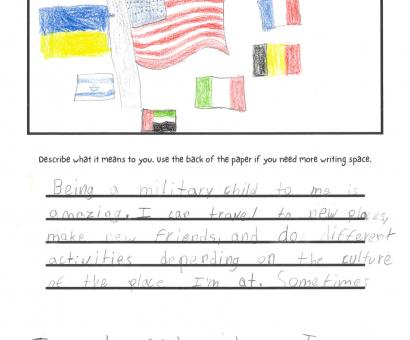 Describe what it means to you. Use the back of the paper if you need more writing space.
Being a military child to me is
amazing. I can travel to new places,
make new friends, and do different
activities depending on the culture
of the place I'm at. Sometimes